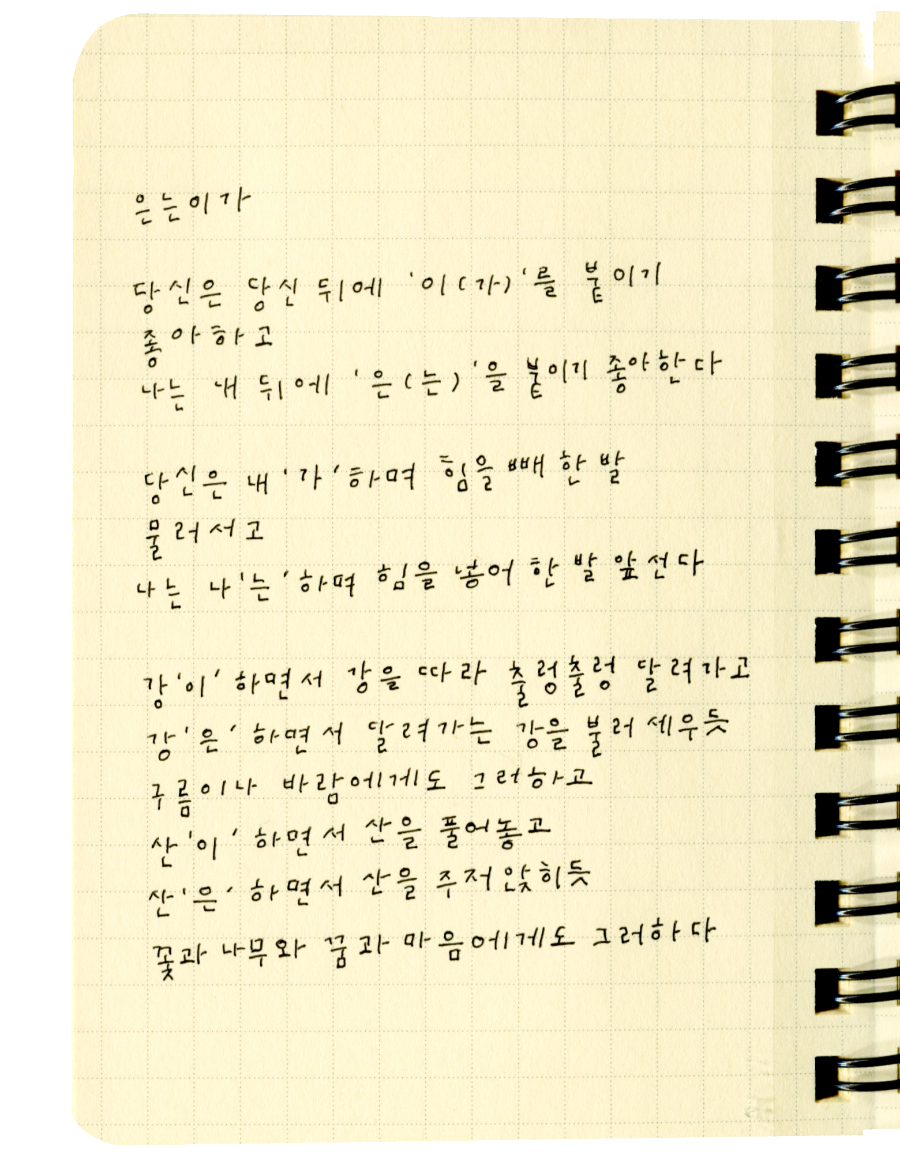 은는이가
당신은 당신 뒤에 '이(가)'를 붙이기
좋아하고
나는 내 뒤에 '은(는)'을 붙이기 좋아한다
당신은 내'가'하며 힘을 빼 한 발
물러서고
나는 나'는'하며 힘을 넣어 한 발 앞선다
강'이'하면서 강을 따라 출렁출렁 달려가고
강'은'하면서 달려가는 강을 불러 세우듯
구름이나 바람에게도 그러하고
산'이'하면서 산을 풀어놓고
산'은'하면서 산을 주저앉히듯
꽃과 나무와 꿈과 마음에게도 그러하다